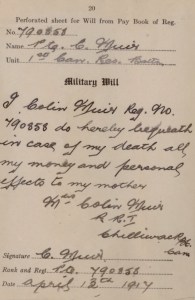 20
Perforated sheet for Will from Pay Book of Reg.
No. 790858
Name Pte. C. Muir
Unit 1st Can. Res. Battn
Military Will
I Colin Muir Reg. No.
790858 do hereby bequeath
in case of my death all
my money and personal
effects to my mother
Mrs Colin Muir
R.R.I
Chilliwack B.C.
Can
Signature C. Muir
Rank and Regt. Pte. 790858
Date april 12th 1917